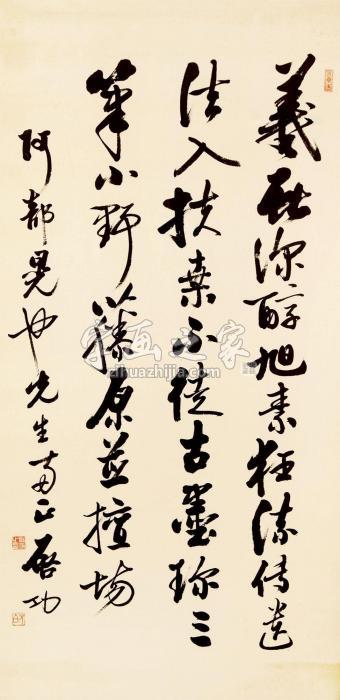 羲献深醇旭素狂流传遗
法入扶桑不徒古墨珍三
筆小野藤原並擅场
阿部晃也先生正 启功
字画之家
zihuazhijia.com